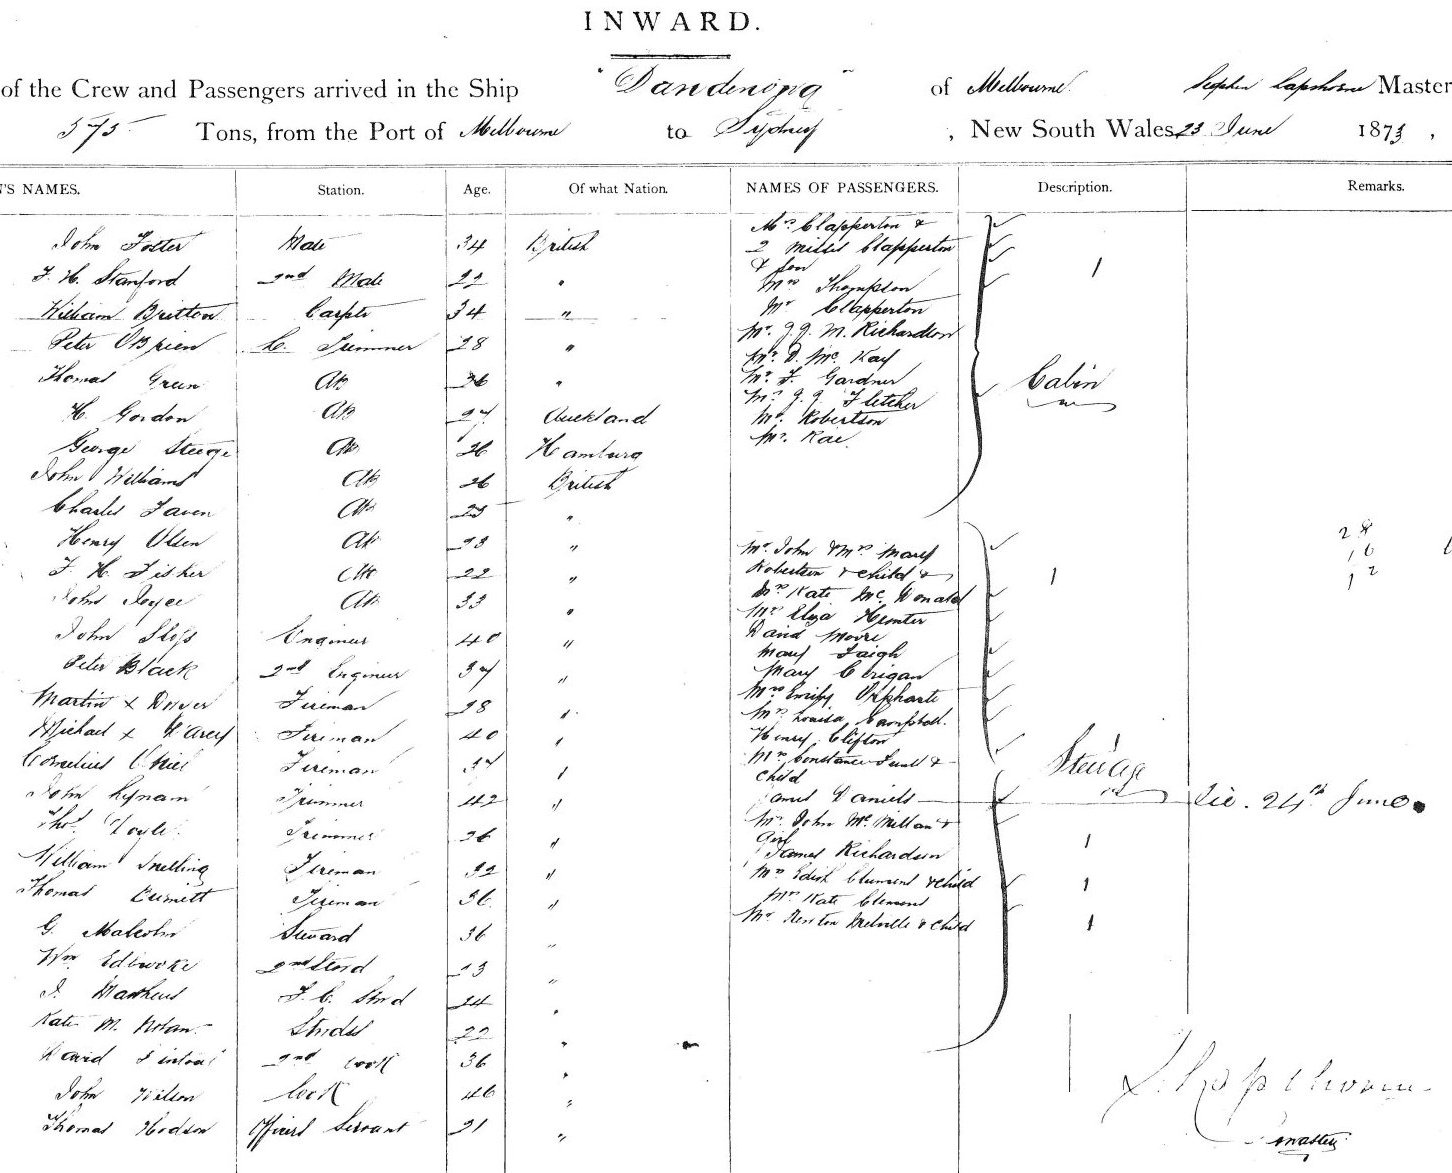 INWARD.
of the Crew and Passengers arrived in the Ship "Dandenong" of Melbourne Stephen Lapthorne Master
575 Tons, from the Port of Melbourne to Sydney, New South Wales 23 June 1873,
'S NAMES. Station. Age. Of what Nation. NAMES OF PASSENGERS. Description. Remarks.
Mrs Clapperton &
John Foster Mate 34 British 2 Misses Clapperton
& son 1
F. H. Stanford 2nd Mate 22 " Mrs Thompson
William Britton Carptr 34 " Mr Clapperton
Peter OBrien L. Trimmer 28 " Mr. J. J. M. Richardson
Mr. D. Mc Kay
Thomas Green AB 26 " Mr. F. Gardner Cabin
Mr. J. J. Fletcher
H. Gordon AB 27 Auckland Mr. Robertson
Mr. Rae.
George Steege AB 26 Hamburg
John Williams AB 26 British
Charles AB 23 "
28
Henry Olsen AB 23 " Mr. John & Mrs Mary 16
F. H. Fisher AB 22 " Robertson & child & 1 12
John Joyce AB 33 " Mrs Kate Mc Donald
Mrs Eliza Hunter
John Engineer 40 " David Moore
Mary
Peter Black 2nd Engineer 37 " Mary
Martin x Dwyer Fireman 28 " Mrs Emily
Mrs Louisa Campbell.
Michael x Fireman 40 " Henry Clifton
Cornelius Fireman 37 " Mrs Constance &
child Steerage
John Lynam Trimmer 42 " James Daniels die. 24th June
Thos. Doyle Trimmer 26 " Mr. John Mc Millan &
Girl 1
William Snelling Fireman 32 " James Richardson
Thomas Fireman 36 " Mrs Edith Clement & child 1
Mrs Kate Clement
G. Malcolm Steward 36 " Mr Renton Melville & child 1
Wm 2nd Stord 23 "
J. Mathews F. C. Stord 24 "
Kate M. Nolan Strdss 22 "
David 2nd cook 36 "
John Wilson Cook 46 "
Thomas Hodson Officers Servant 21 "
S. Lapthorne
Master